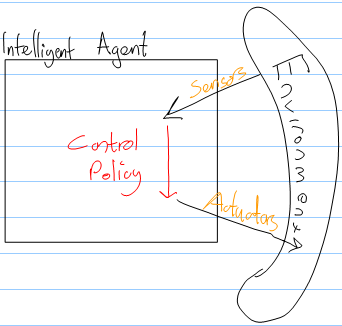 Intelligent Agent
Sensors
Control
Policy
Actuators
Environment